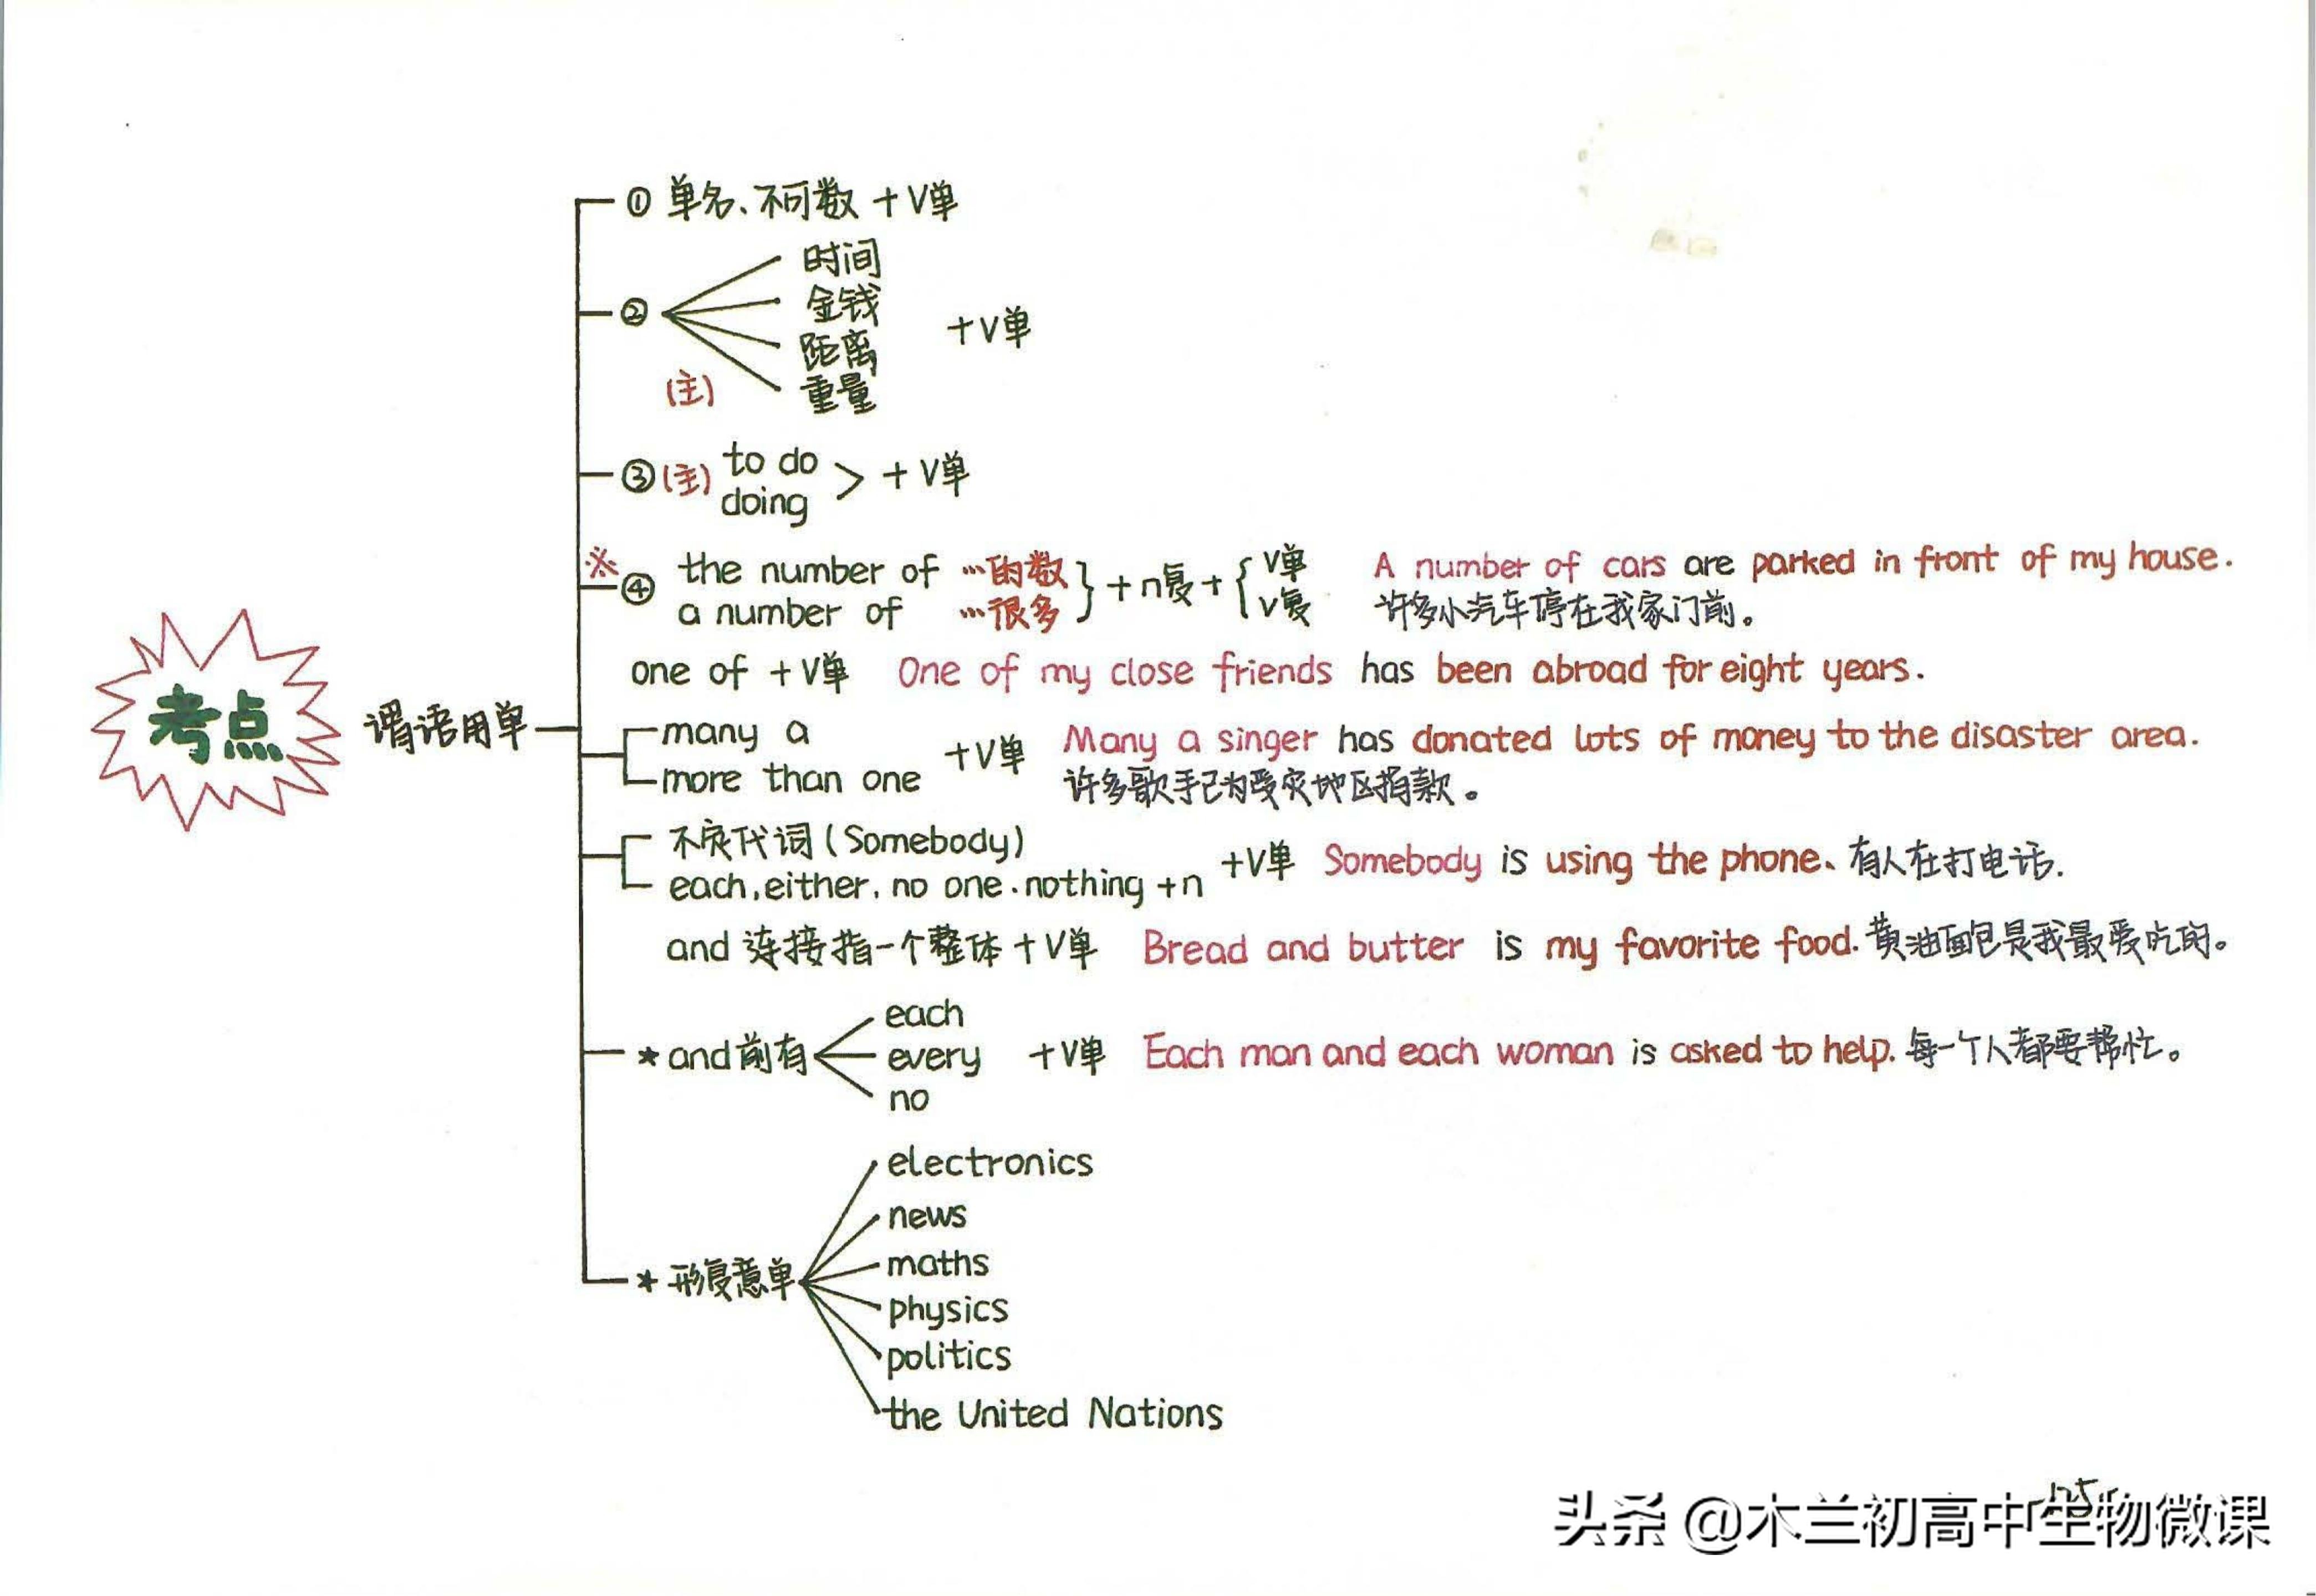 考点
谓语用单
① 单名、不可数 + V单
②
时间
金钱
距离
重量
(主)
+V单
③(主) to do
doing
> + V单
※
④ the number of …的数
a number of …很多
} + n复 + {
V单
V复
A number of cars are parked in front of my house.
许多小汽车停在我家门前。
one of + V单 One of my close friends has been abroad for eight years.
many a
more than one
+V单
Many a singer has donated lots of money to the disaster area.
许多歌手已为受灾地区捐款。
不定代词(Somebody)
each, either, no one. nothing +n
+V单
Somebody is using the phone、有人在打电话.
and 连接指一个整体 + V单 Bread and butter is my favorite food. 黄油面包是我最爱吃的。
★ and前有
each
every
no
+V单
Each man and each woman is asked to help. 每一个人都要帮忙。
★ 形复意单
electronics
news
maths
physics
politics
the United Nations
头条 @木兰初高中生物微课